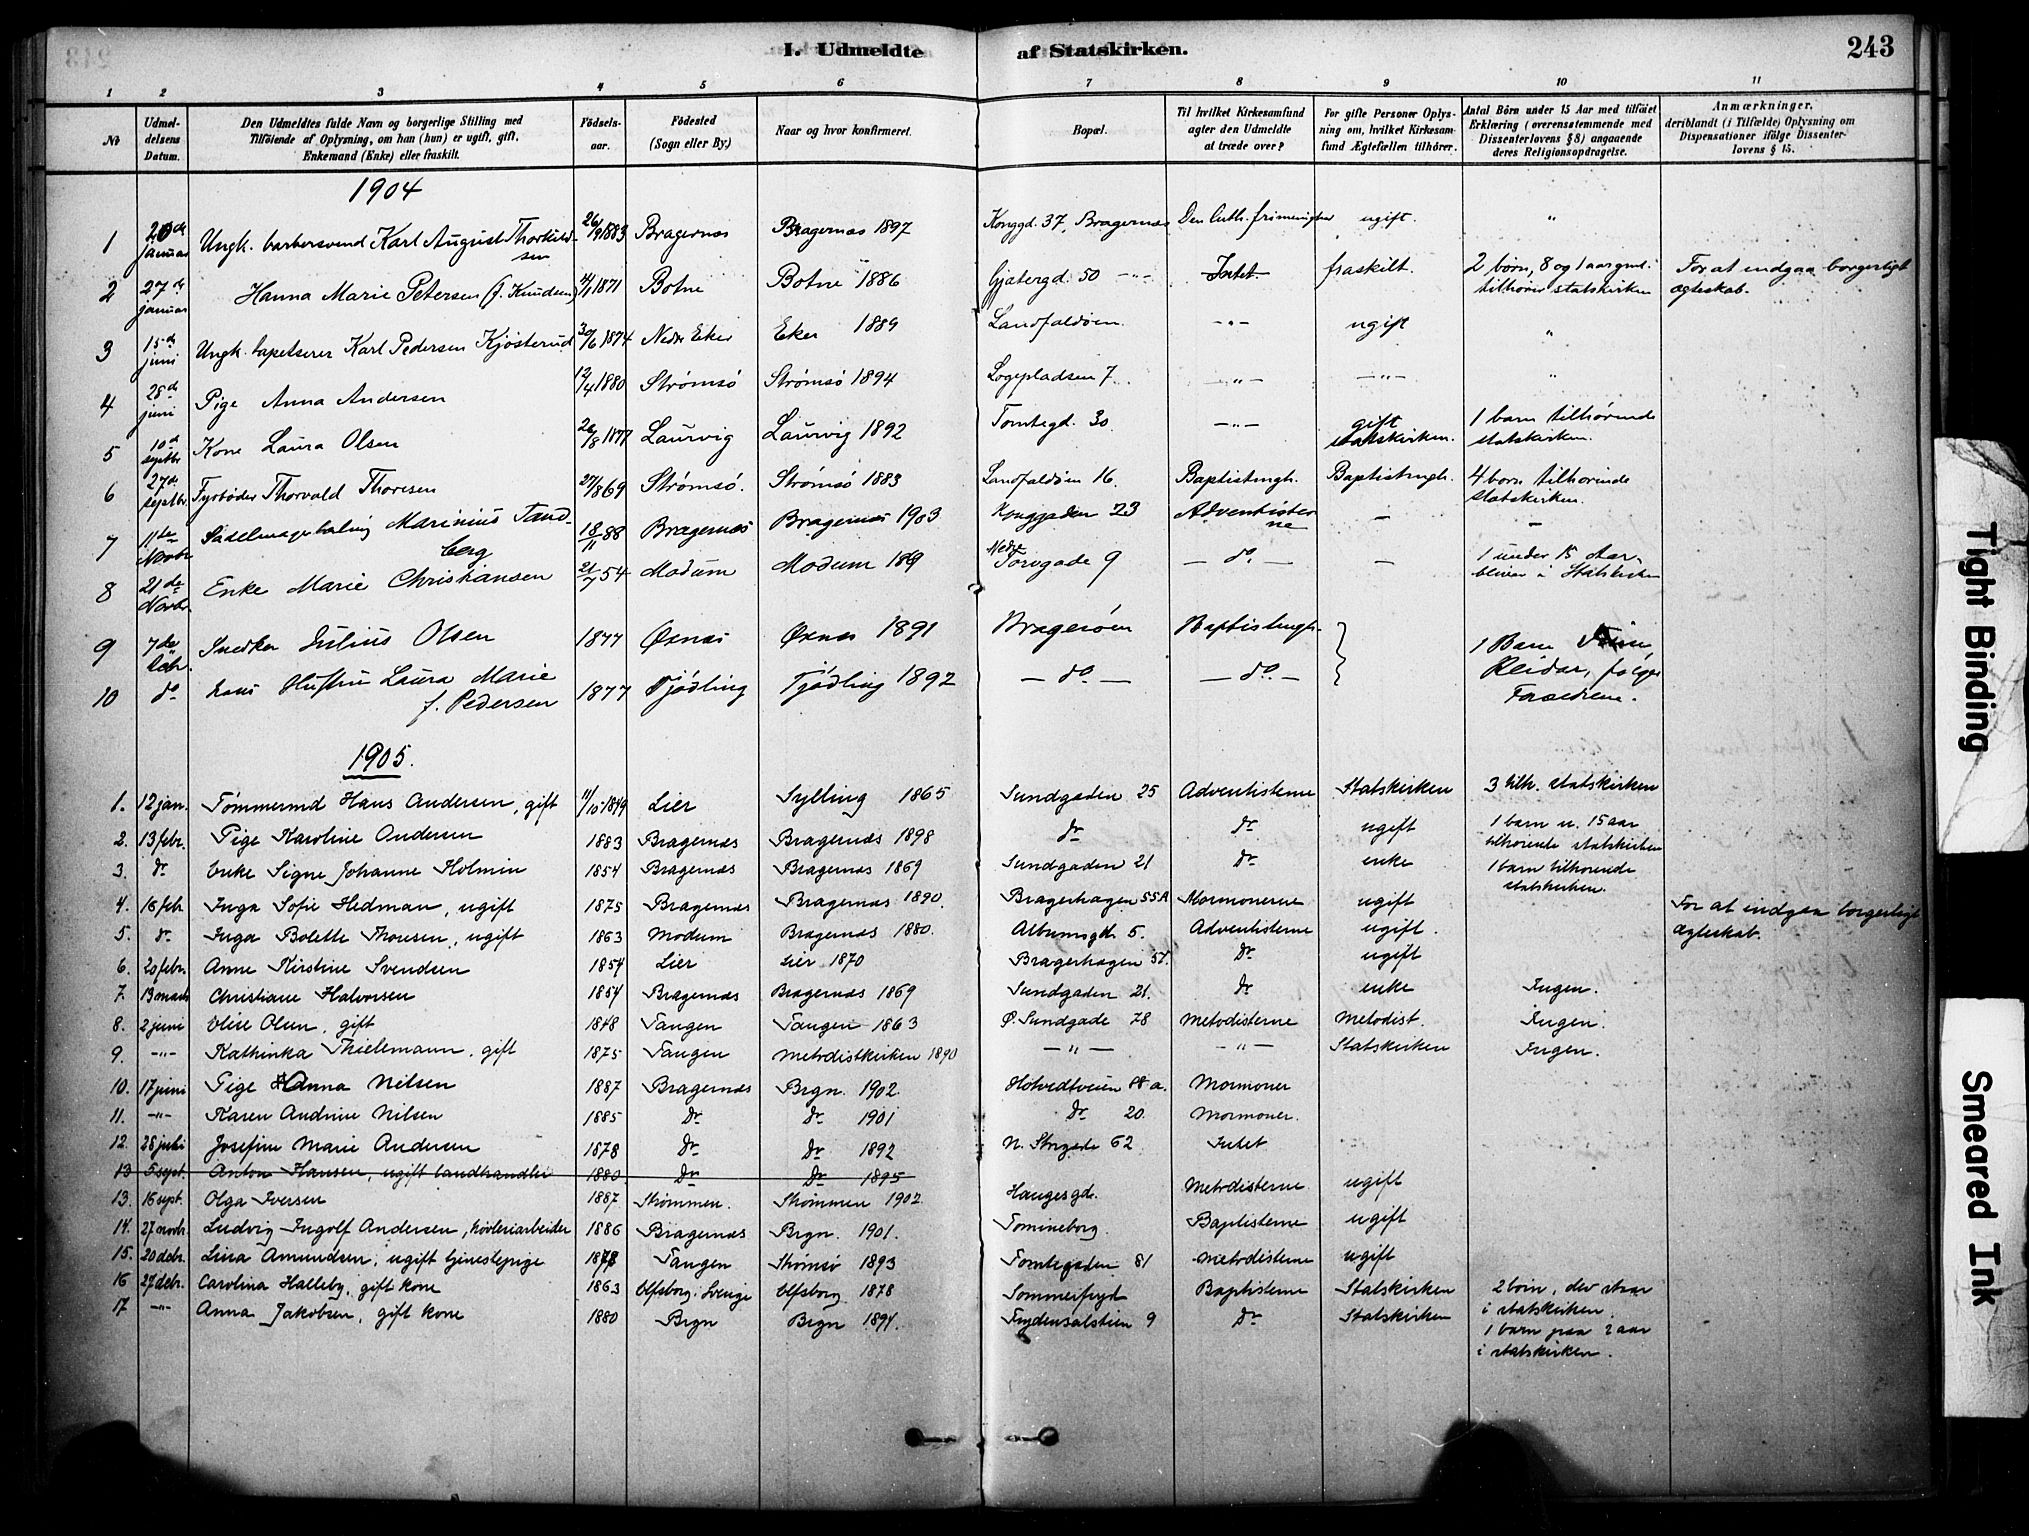 I. Udmeldte af Statskirken.
243
1 2 3 4 5 6 7 8 9 10 11
№
Udmeldelsens Datum.
Den Udmeldtes fulde Navn og borgerlige Stilling med
Tilföiende af Oplysning, om han (hun) er ugift, gift,
Enkemand (Enke) eller fraskilt.
Födselsaar.
Födested
(Sogn eller By)
Naar og hvor konfirmeret.
Bopæl.
Til hvilket Kirkesamfund
agter den Udmeldte
at træde over?
For gifte Personer Oplysning om, hvilket Kirkesamfund Ægtefællen tilhörer.
Antal Börn under 15 Aar med tilföiet
Erklæring (overensstemmende med
Dissenterlovens § 8) angaaende
deres Religionsopdragelse.
Anmærkninger,
deriblandt (i Tilfælde) Oplysning om
Dispensationer ifölge Dissenterlovens § 15.
1904
1 20de januar Ungk. barbersvend Karl August Thorkildsen 26/9 1883 Bragernæs Bragernæs 1897 Konggd. 37, Bragernæs Den luth. frimenighed ugift. "
2 27de januar Hanna Marie Petersen (f. Knudsen) 4/1 1871 Botne Botne 1886 Gjætergd. 50 -"- Intet fraskilt. 2 børn, 8 og 1 aar gml. tilhører statskirken For at indgaa borgerligt ægteskab.
3 15de juni Ungk. tapetserer Karl Pedersen Kjøsterud 30/6 1874 Nedre Eker Eker 1889 Landfaldøen. -"- ugift "
4 28de juni Pige Anna Andersen 12/4 1880 Strømsø Strømsø 1894 Logepladsen 7. -"- -"- "
5 10de septbr Kone Laura Olsen 26/8 1877 Laurvig Laurvig 1892 Tomtegd. 30 -"- gift statskirken. 1 barn tilhørende statskirken.
6 27de septbr. Fyrbøder Thorvald Thoresen 27/8 69 Strømsö. Strømsö 1883 Landfaldöen 16. Baptistmgh. Baptistmgh. 4 børn tilhørende statskirken.
7 11te Novbr Sadelmagerlærling Marinius Tandberg 18/11 88 Bragernæs Bragernæs 1903 Konggaden 23 Adventisterne - -
8 21de Novbr. Enke Marie Christiansen 21/7 54 Modum Modum 189 Nedre Torvgade 9 - do. - - 1 under 15 Aar, bliver i Statskirken
9 7de Snedker Julius Olsen 1877 Øxnæs Øxnæs 1891 Bragerøen Baptistmgh. 1 Barn
Reidar, følger Forældrene.
10 do Hans Hustru Laura Marie f. Pedersen 1877 Tjødling Tjødling 1892 - do - - do -
1905.
1. 12 jan. Tømmermd Hans Andersen, gift 11/10 1849 Lier Sylling 1865 Sundgaden 25 Adventisterne Statskirken 3 tilh. statskirken
2. 13 febr. Pige Karoline Andersen 1883 Bragernæs Bragernæs 1898 do do ugift 1 barn u. 15 aar tilhørende statskirken
3. do Enke Signe Johanne Holmin 1854 Bragernæs Bragernæs 1869 Sundgaden 21 do enke 1 barn tilhørende statskirken.
4. 16 febr. Inga Sofie Hedman, ugift 1875 Bragernæs Bragernæs 1890. Bragerhagen 55A Mormonerne ugift For at indgaa borgerligt ægteskab.
5. do Inga Bolette Thoresen, ugift 1863 Modum Bragernæs 1880. Albumsgd. 5. Adventisterne ugift.
6. 20 febr. Anne Kirstine Svendsen 1854 Lier Lier 1870 Bragerhagen do ugift
7. 13 marts Christiane Halvorsen 1854 Bragernæs Bragernæs 1869 Sundgaden 21. do enke Ingen.
8. 2 juni Elise Olsen, gift 1848 Tangen Tangen 1863 Ø. Sundgade 78 Metodisterne Metodist. Ingen.
9. -"- Kathinka Thielemann, gift 1875 Tangen Metodistkirken 1890 -"- -"- Statskirken Ingen.
10. 17 juni Pige Anna Nilsen 1887 Bragernæs Brgn. 1902. Hotvedtveien a. Mormoner
11. -"- Karen Andrine Nilsen 1885 do do 1901 do 20. Mormoner.
12. 28 juli Josefine Marie Andersen 1878 do do 1892 N. Storgade 62 Intet
13 5 sept. Anton Hansen, ugift landhandler 1880 do do 1895
13. 16 sept. Olga Iversen 1887 Strømmen. Strømmen 1902. Haugesgd. Metodisterne. ugift
14. 27 novb. Ludvig Ingolf Andersen, høvleriarbeider 1886 Bragernæs Brgn. 1901. Tomineborg. Baptisterne ugift
15. 20 debr. Lina Amundsen, ugift tjenestepige 1878 Tangen Strømsø 1893 Tomtegaden 81 Metodisterne ugift
16 27 debr. Carolina Halleby, gift kone 1863 Elfsborg i Sverige Elfsborg 1878 Sommerfryd Baptisterne Statskirken 2 børn, der staar i statskirken.
17 -"- Anna Jakobsen, gift kone 1880 Brgn Brgn 1894. Frydensalstien 9 do Statskirken 1 barn paa 2 aar i statskirken.
Tight Binding
Smeared Ink